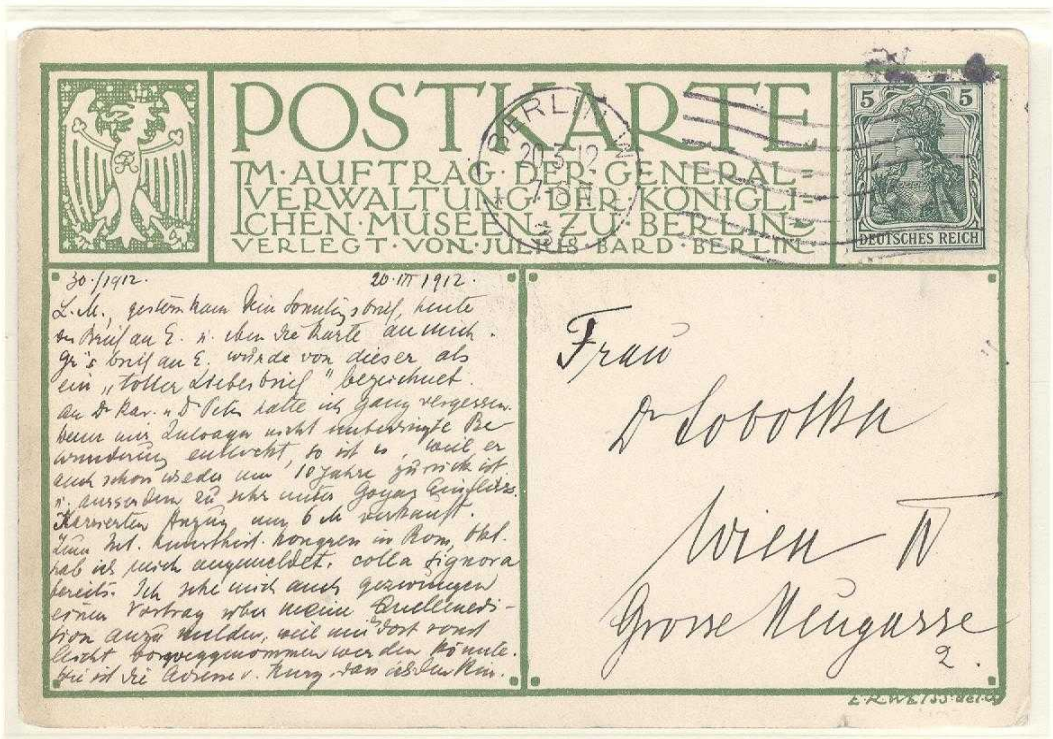 POSTKARTE
IM·AUFTRAG·DER·GENERAL=
VERWALTUNG·DER·KÖNIGLI=
CHEN·MUSEEN·ZU·BERLIN=
VERLEGT·VON·JULIUS·BARD·BERLIN
BERLIN W
20.3.12
7-8N
5 5
DEUTSCHES REICH
30./1912. 20·III 1912.
L. M., gestern kam Dein Sonntagsbrief, heute
der Brief an E. u. eben die Karte an mich.
Gi's brief an E. wurde von dieser als
ein „toller Liebesbrief" bezeichnet.
an Dr Kar. u Dr Peter hatte ich ganz vergessen.
Wenn mir Zuloaga nicht unbedingte Be
wunderung entlockt, so ist es, weil er
auch schon wieder um 10 Jahre zurück ist
u. ausserdem zu sehr unter Goyas Einfluss.
Karrierten Anzug um 6 M verkauft.
Zum Int. kunsthist. Kongress in Rom, Okt.
hab ich mich angemeldet, colla signora
bereits. Ich sehe mich auch gezwungen
einen Vortrag über meine Quellenedi-
tion anzumelden, weil mir dort sonst
leicht vorweggenommen werden könnte.
ist die Adresse v.
Frau
Dr Sobotka
Wien IV
Grosse Neugasse
2.
E·R·WEISS·del·